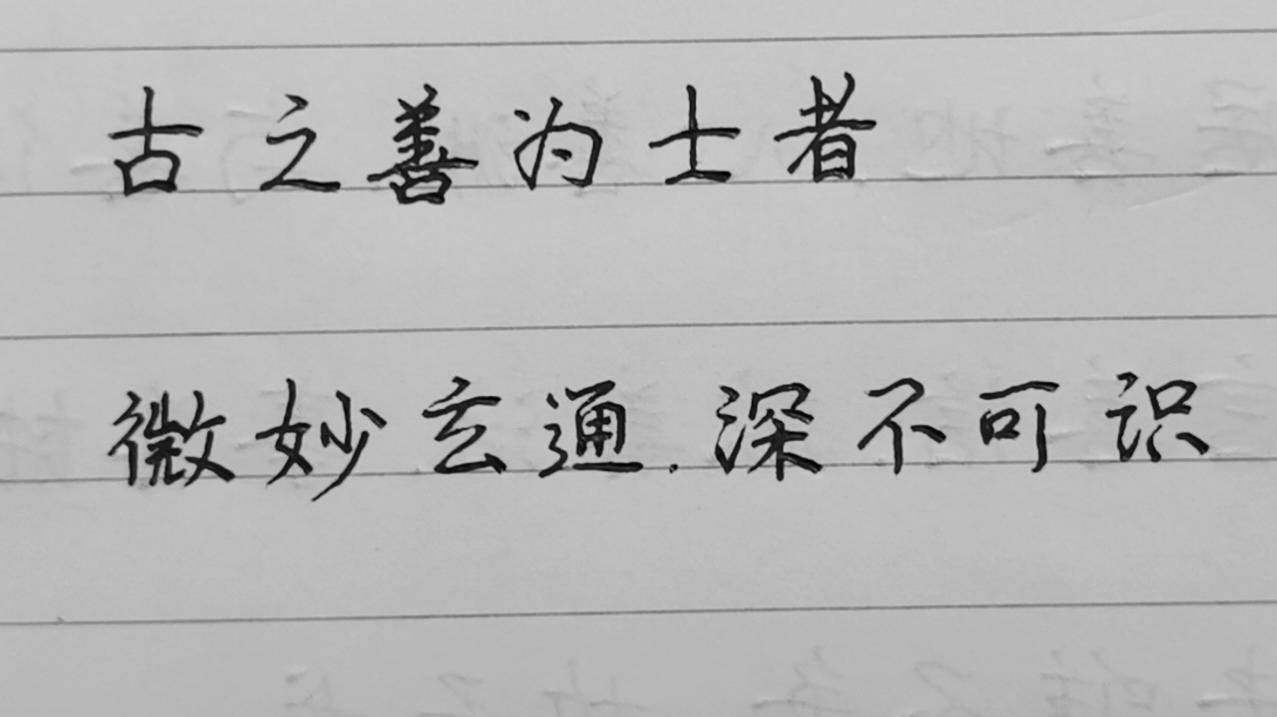 古之善为士者
微妙玄通.深不可识